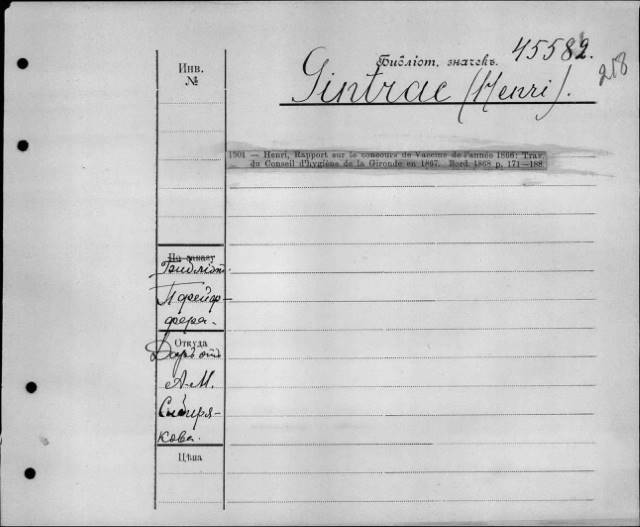 Библіот. значекъ. 45582.
218
Gintrac (Henri).
Инв.
№
1904 — Henri, Rapport sur le concours de Vaccine de l'année 1866; Trav.
du Conseil d'hygiène de la Gironde en 1867. Bord. 1868 p. 171—188
На заказу
Библіот.
Пфейф-
фера.
Откуда
Даръ отъ
А. М.
Сибиря-
кова.
Цѣна